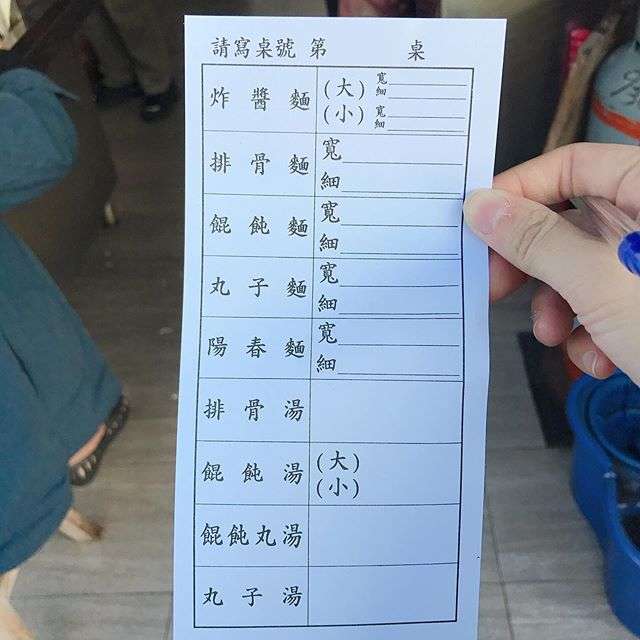 請寫桌號 第 桌
炸醬麵 (大) 寬
細
(小) 寬
細
排骨麵 寬
細
餛飩麵 寬
細
丸子麵 寬
細
陽春麵 寬
細
排骨湯
餛飩湯 (大)
(小)
餛飩丸湯
丸子湯